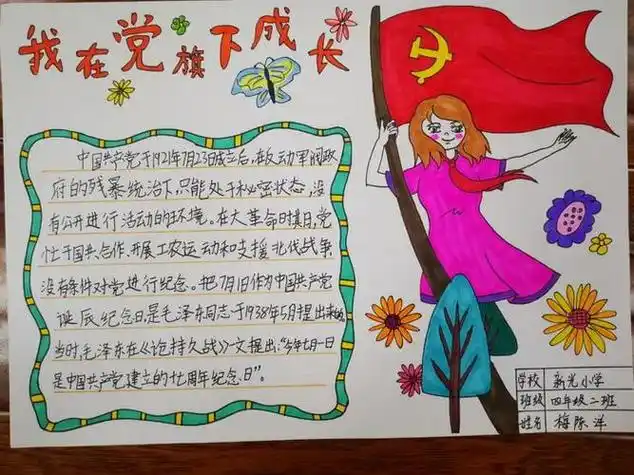 我在党旗下成长
中国共产党于1921年7月23日成立后,在反动军阀政
府的残暴统治下,只能处于秘密状态,没
有公开进行活动的环境。在大革命时期,党
忙于国共合作、开展工农运动和支援北伐战争,
没有条件对党进行纪念。把7月1日作为中国共产党
诞辰纪念日,是毛泽东同志于1938年5月提出来的。
当时,毛泽东在《论持久战》一文提出:“今年七月一日
是中国共产党建立的十七周年纪念日”。
学校 新光小学
班级 四年级二班
姓名 梅陈洋